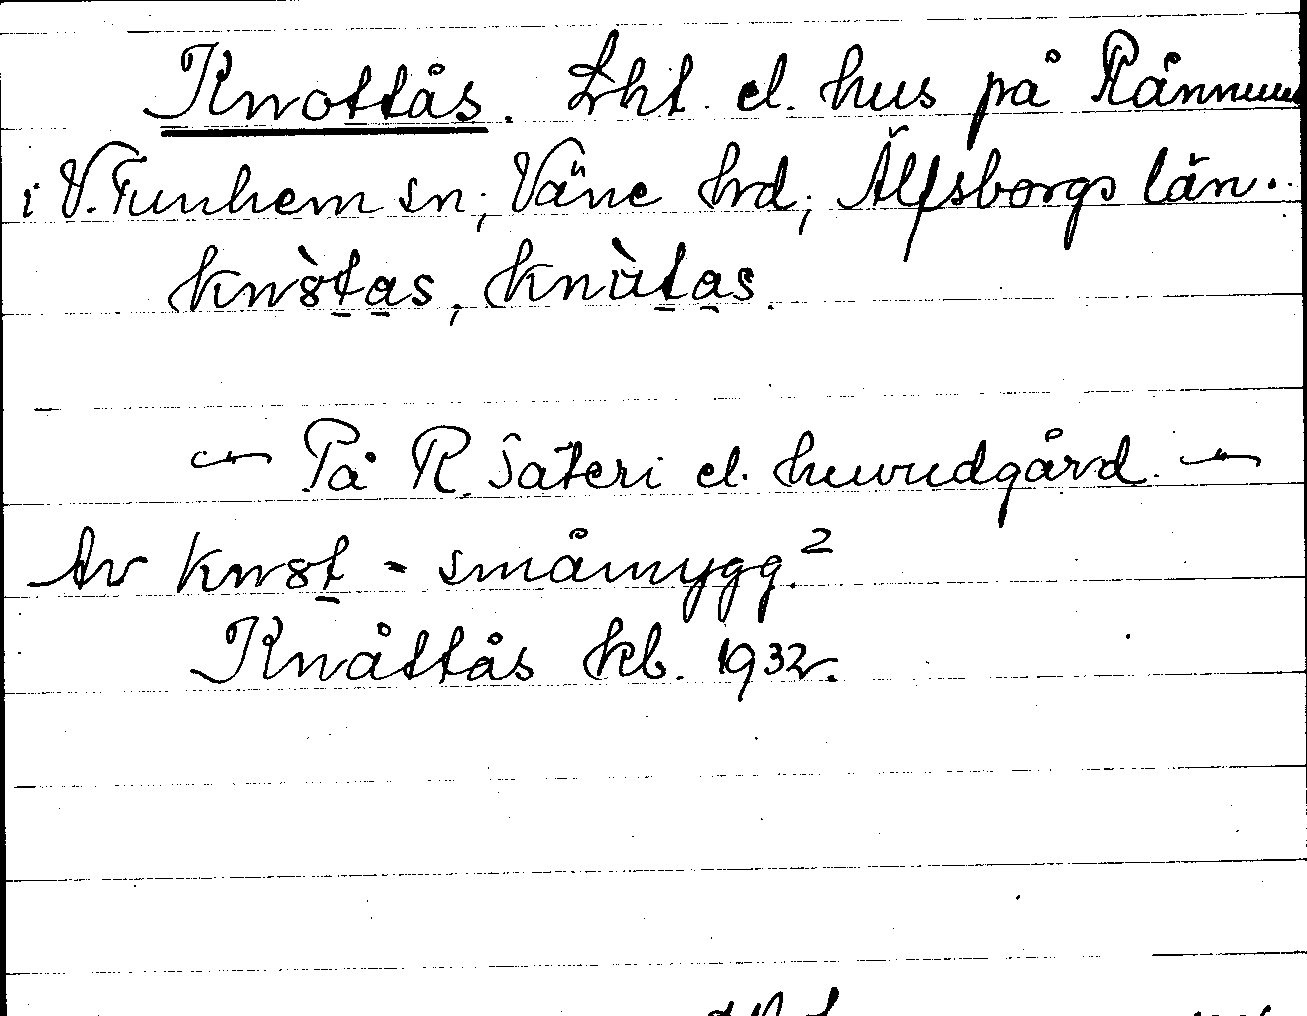 Knottås. Lht. el. hus på Rånnum
i V. Tunhem sn; Väne hrd; Älfsborgs län.
knòtas, knùtas.
— På R. Säteri el. huvudgård. —
Av knot - småmygg.?
Knåttås kb. 1932.